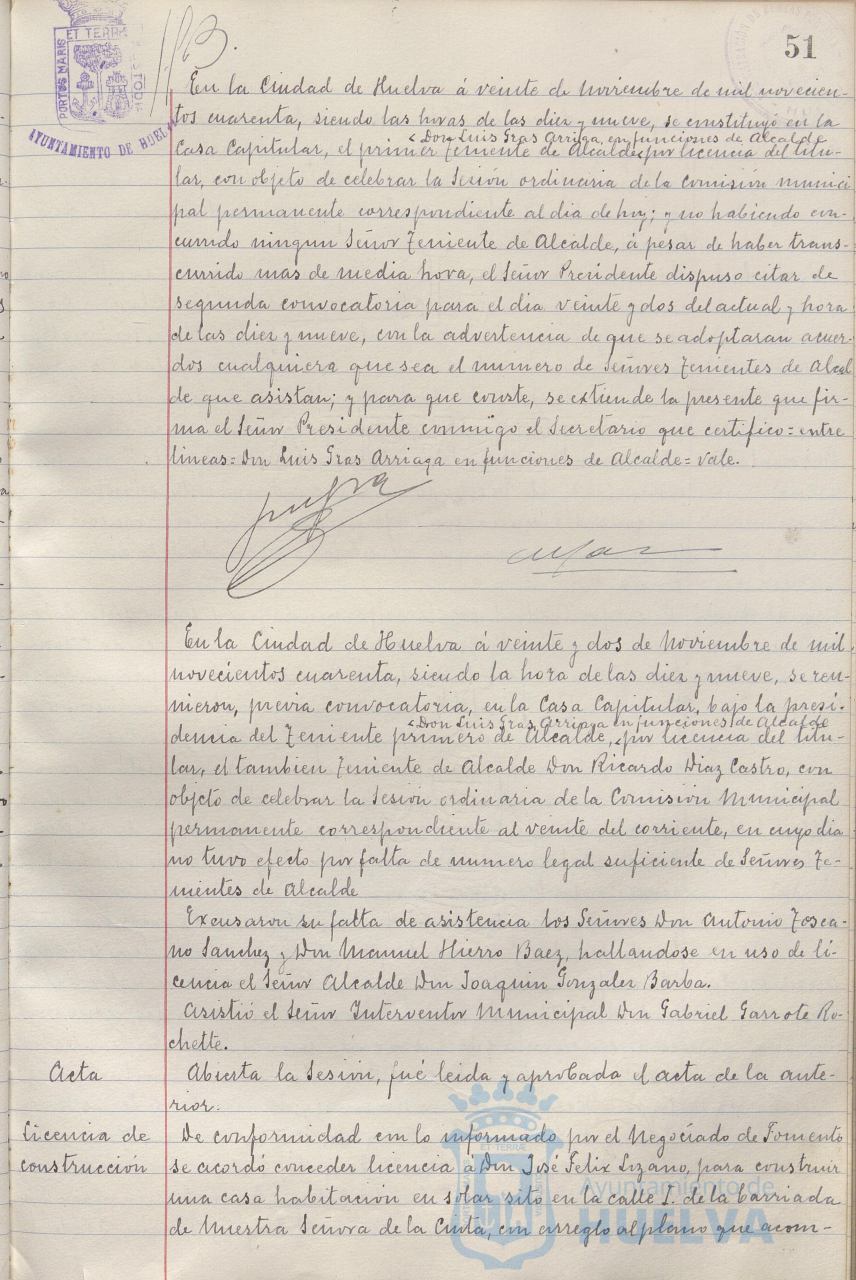 PORTUS MARIS ET TERRÆ CUSTODIA
AYUNTAMIENTO DE HUELVA
51
En la Ciudad de Huelva á veinte de noviembre de mil novecien-
tos cuarenta, siendo las horas de las diez y nueve, se constituyó en la
< Don Luis Gras Arriaga, en funciones de Alcalde
Casa Capitular, el primer Teniente de Alcalde, < por licencia del titu-
lar, con objeto de celebrar la Sesión ordinaria de la comisión munici
pal permanente correspondiente al dia de hoy; y no habiendo con-
currido ningun Señor Teniente de Alcalde, á pesar de haber trans-
currido mas de media hora, el Señor Presidente dispuso citar de
segunda convocatoria para el dia veinte y dos del actual y hora
de las diez y nueve, con la advertencia de que se adoptaran acuer-
dos cualquiera que sea el numero de Señores Tenientes de Alcal
de que asistan; y para que conste, se extiende la presente que fir-
ma el Señor Presidente conmigo el Secretario que certifico = entre
lineas = Don Luis Gras Arriaga en funciones de Alcalde = vale.
En la Ciudad de Huelva á veinte y dos de Noviembre de mil
novecientos cuarenta, siendo la hora de las diez y nueve, se reu-
nieron, previa convocatoria, en la Casa Capitular, bajo la presi-
< Don Luis Gras Arriaga en funciones de Alcalde
dencia del Teniente primero de Alcalde, < por licencia del titu-
lar, el tambien Teniente de Alcalde Don Ricardo Diaz Castro, con
objeto de celebrar la Sesión ordinaria de la Comisión Municipal
permanente correspondiente al veinte del corriente, en cuyo dia
no tuvo efecto por falta de numero legal suficiente de Señores Te-
nientes de Alcalde
Excusaron su falta de asistencia los Señores Don Antonio Tosca-
no Sanchez y Don Manuel Hierro Baez, hallandose en uso de li-
cencia el Señor Alcalde Don Joaquin Gonzalez Barba.
Asistió el Señor Interventor Municipal Don Gabriel Garrote Ro-
chette.
Acta
Abierta la Sesión, fué leida y aprobada el acta de la ante-
rior.
Licencia de
construcción
De conformidad con lo informado por el Negociado de Fomento
se acordó conceder licencia á Don José Felix Lozano, para construir
una casa habitación en solar sito en la calle I. de la barriada
de Nuestra Señora de la Cinta, con arreglo al plano que acom-
Ayuntamiento de
HUELVA